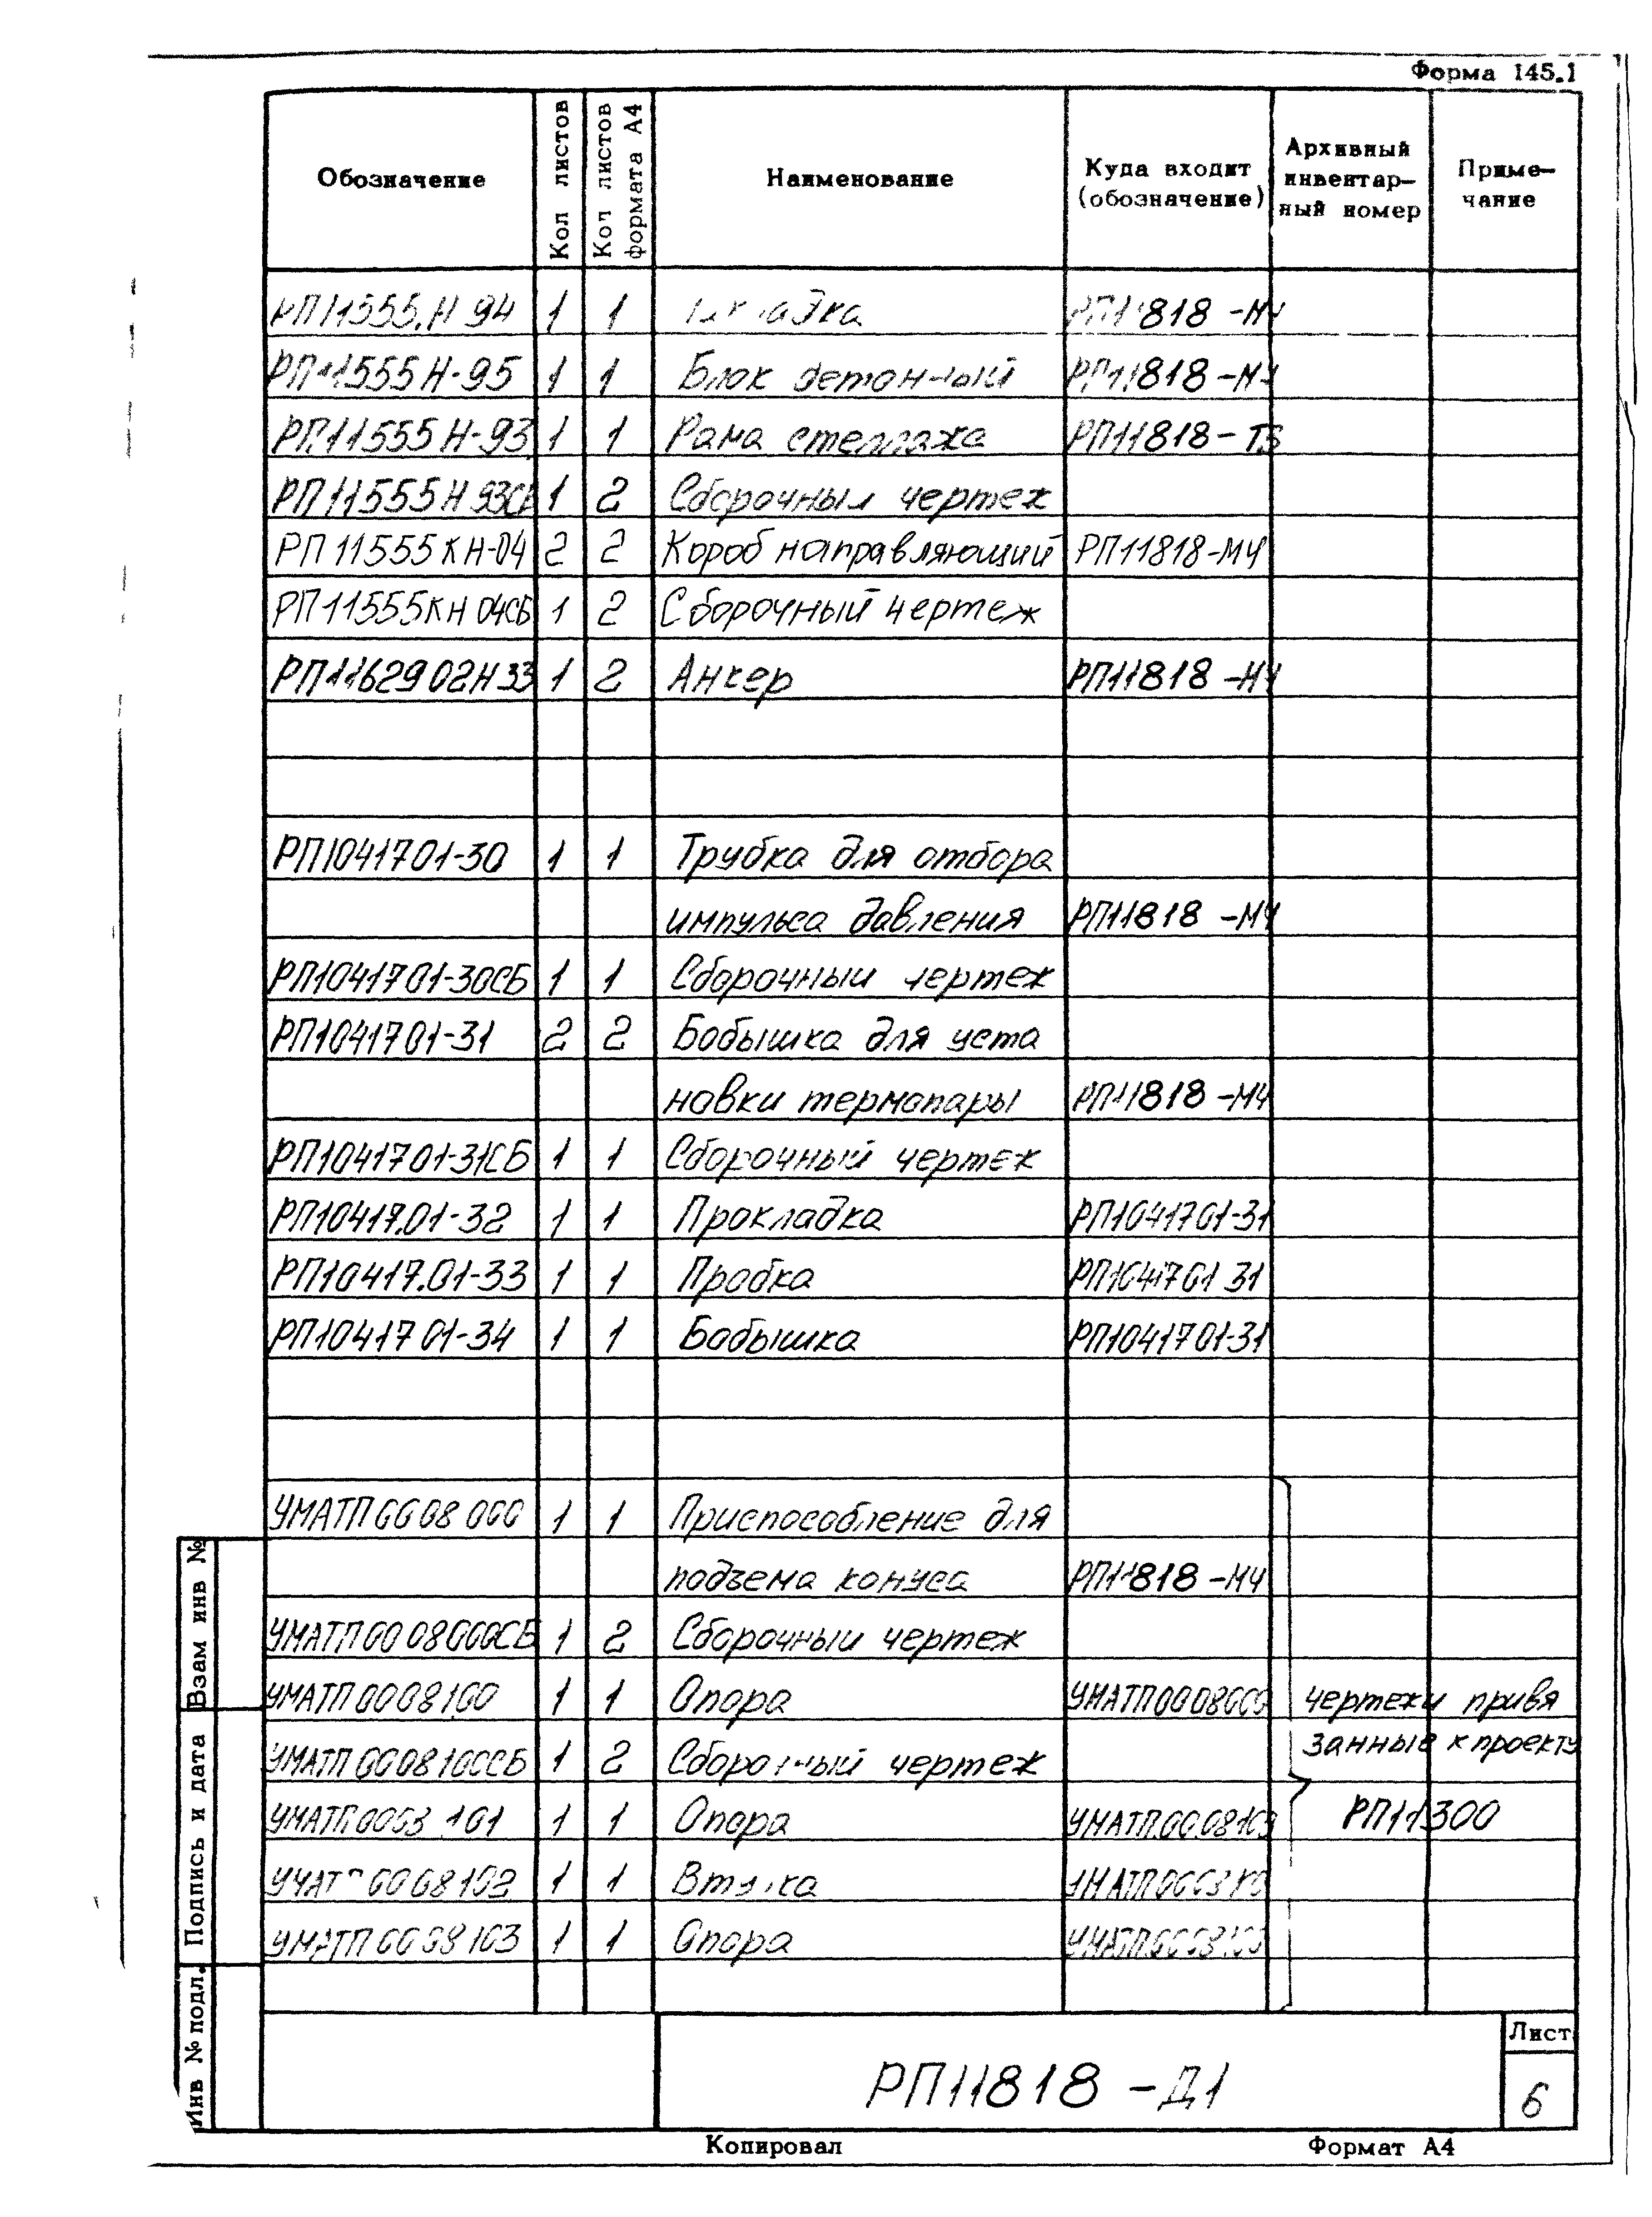 Форма 145.1
Обозначение
Кол листов
Кол листов
формата А4
Наименование
Куда входит
(обозначение)
Архивный
инвентар-
ный номер
Приме-
чание
РП11555.Н 94 1 1 РП11818-МЧ
РП11555Н-95 1 1 Блок бетонный РП11818-МЧ
РП.11555Н-93 1 1 Рама стеллажа РП11818-Т3
РП11555Н 93СБ 1 2 Сборочный чертеж
РП11555КН-04 2 2 Короб направляющий РП11818-МЧ
РП11555КН 04СБ 1 2 Сборочный чертеж
РП1162902Н33 1 2 Анкер РП11818-МЧ
РП1041701-30 1 1 Трубка для отбора
импульса давления РП11818-МЧ
РП1041701-30СБ 1 1 Сборочный чертеж
РП1041701-31 2 2 Бобышка для уста
новки термопары РП11818-МЧ
РП1041701-31СБ 1 1 Сборочный чертеж
РП10417.01-32 1 1 Прокладка РП1041701-31
РП10417.01-33 1 1 Пробка РП1041701 31
РП10417 01-34 1 1 Бобышка РП1041701-31
УМАТП0008 000 1 1 Приспособление для
подъема конуса РП11818-МЧ
УМАТП0008000СБ 1 2 Сборочный чертеж
УМАТП0008100 1 1 Опора УМАТП0008000 чертежи привя
УМАТП0008100СБ 1 2 Сборочный чертеж занные к проекту
1 1 Опора РП11300
1 1 Втулка
УМАТП0008103 1 1 Опора
Взам инв №
Подпись и дата
Инв № подл.
РП11818-Д1
Лист
6
Копировал
Формат А4